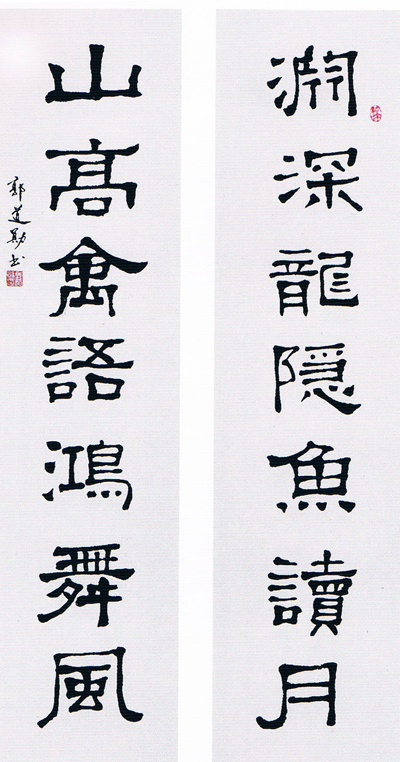 淵深龍隐魚讀月
山高禽語鴻舞風
郭道勋书